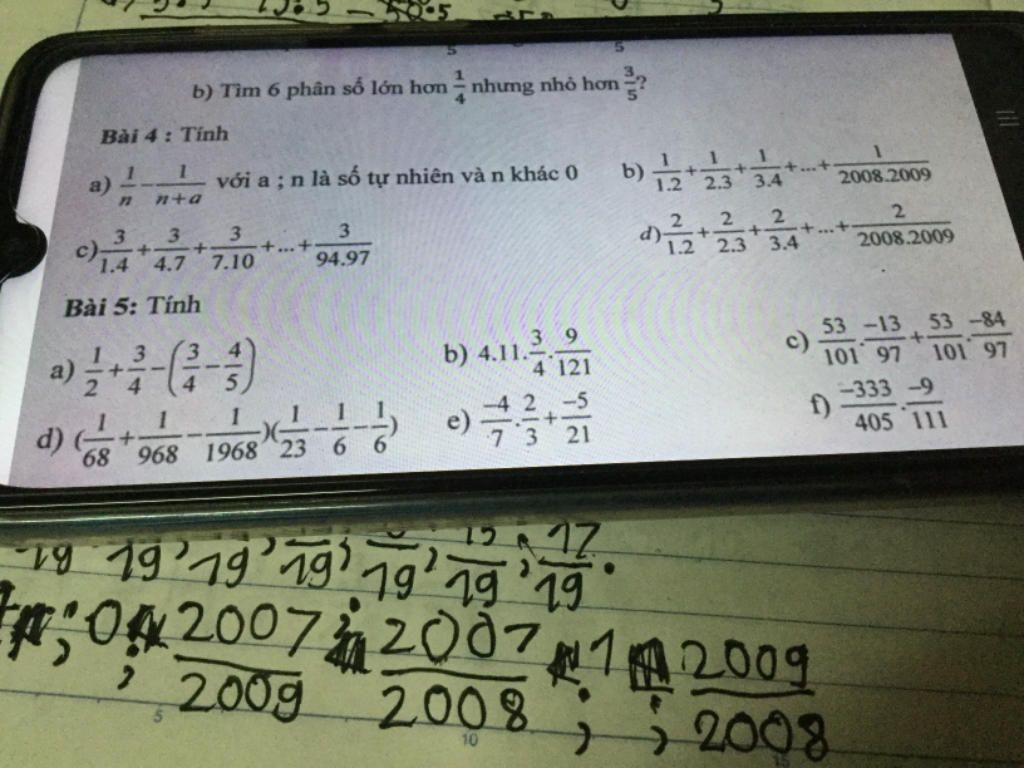 b) Tìm 6 phân số lớn hơn 1/4 nhưng nhỏ hơn 3/5?
Bài 4 : Tính
a) 1/n − 1/(n+a) với a ; n là số tự nhiên và n khác 0 b) 1/1.2 + 1/2.3 + 1/3.4 + ... + 1/2008.2009
c) 3/1.4 + 3/4.7 + 3/7.10 + ... + 3/94.97 d) 2/1.2 + 2/2.3 + 2/3.4 + ... + 2/2008.2009
Bài 5: Tính
a) 1/2 + 3/4 − (3/4 − 4/5) b) 4.11. 3/4 . 9/121 c) 53/101 . −13/97 + 53/101 . −84/97
d) (1/68 + 1/968 − 1/1968)(1/23 − 1/6 − 1/6) e) −4/7 . 2/3 + −5/21 f) −333/405 . −9/111
15/19 ; 17/19 .
; 0 ; 2007/2009 ; 2007/2008 ; 1 ; 2009/2008
5 10 15